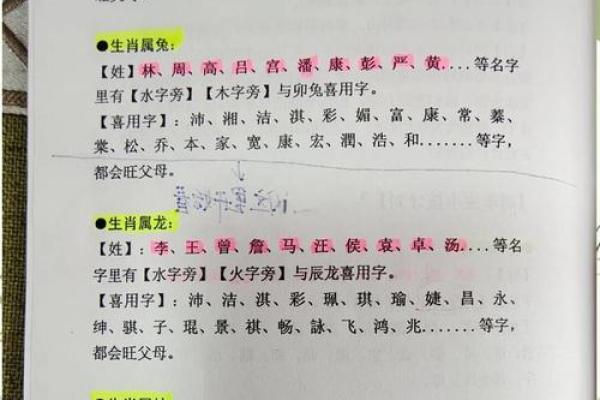 ●生肖属兔:
【姓】林、周、高、吕、宫、潘、康、彭、严、黄....等名字
里有【水字旁】【木字旁】与卯兔喜用字。
【喜用字】:沛、湘、洁、淇、彩、媚、富、康、常、蓁、
棠、松、乔、本、家、宽、康、宏、潤、浩、和.......等字,
都会旺父母。
●生肖属龙:
【姓】:李、王、曾、詹、马、汪、侯、袁、卓、汤....等名
字里有【水字旁】【火字旁】与辰龙喜用字。
【喜用字】:沛、洁、淇、彩、珮、琪、瑜、婕、昌、永、
绅、骐、子、琨、景、祺、畅、詠、飞、鸿、兆.......等字,
都会旺父母。